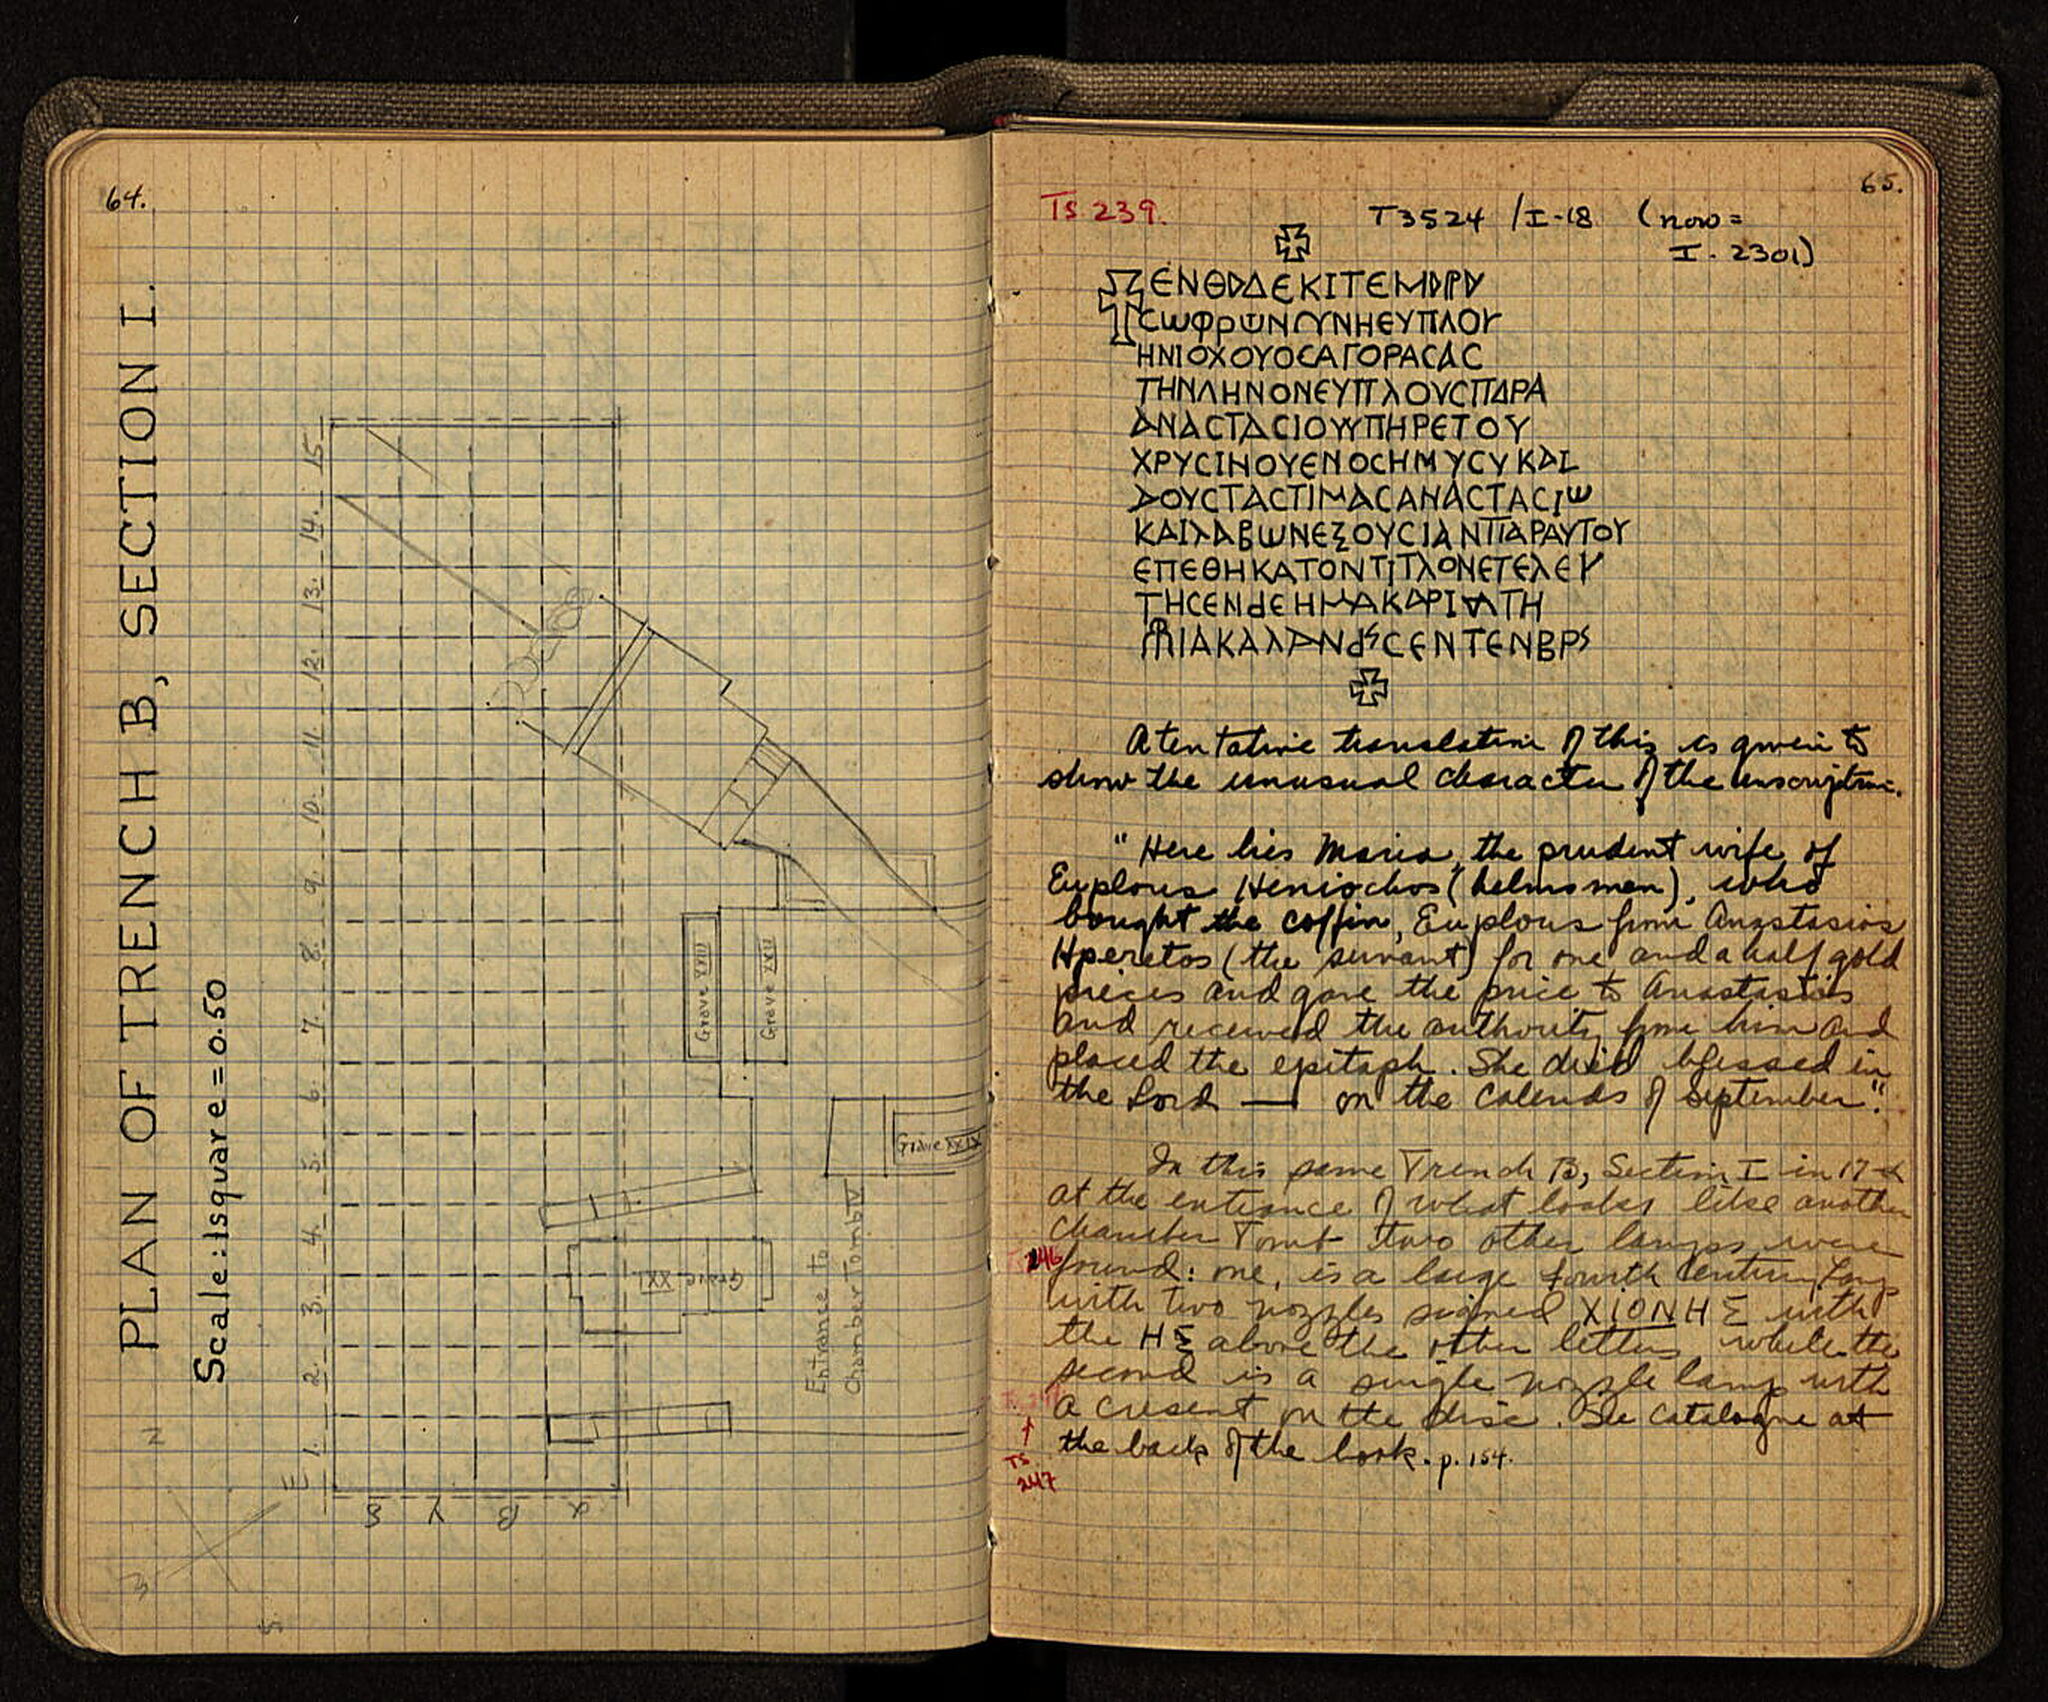 64.
PLAN OF TRENCH B, SECTION I.
Scale: 1 square = 0.50
15.
14.
13.
12.
11.
10.
9.
8.
7.
6.
5.
4.
3.
2.
1.
δ γ β α
N
E
S
Grave XXIII
Grave XXII
Grave XXIX
Grave XXI
Entrance to
Chamber Tomb IV
65.
TS 239.
T3524 / I-18 (now =
I. 2301)
ΕΝΘΑΔΕΚΙΤΕΜΑΡΙΑ
CΩΦΡΩΝΓΥΝΗΕΥΠΛΟΥ
ΗΝΙΟΧΟΥΟCΑΓΟΡΑCΑC
ΤΗΝΛΗΝΟΝΕΥΠΛΟΥCΠΑΡΑ
ΑΝΑCΤΑCΙΟΥΥΠΗΡΕΤΟΥ
ΧΡΥCΙΝΟΥΕΝΟCΗΜΥCΥΚΑΙ
ΔΟΥCΤΑCΤΙΜΑCΑΝΑCΤΑCΙΩ
ΚΑΙΛΑΒΩΝΕΞΟΥCΙΑΝΠΑΡΑΥΤΟΥ
ΕΠΕΘΗΚΑΤΟΝΤΙΤΛΟΝΕΤΕΛΕΥ
ΤΗCΕΝdΕΗΜΑΚΑΡΙΑΤΗ
ΜΙΑΚΑΛΑΝdSCΕΝΤΕΝΒΡS
A tentative translation of this is given to
show the unusual character of the inscription.
"Here lies Maria, the prudent wife of
Euplous Heniochos (helmsman), who
bought the coffin, Euplous from Anastasios
Hperetos (the servant) for one and a half gold
pieces and gave the price to Anastasios
and received the authority from him and
placed the epitaph. She died blessed in
the Lord — on the Calends of September."
In this same Trench B, Section I in 17 α
at the entrance of what looks like another
chamber Tomb two other lamps were
246
found: one, is a large fourth century lamp
with two nozzles signed ΧΙΟΝΗΣ with
the ΗΣ above the other letters while the
second is a single nozzle lamp with
a cresent on the disc. See catalogue at
the back of the book. p. 154.
TS
247